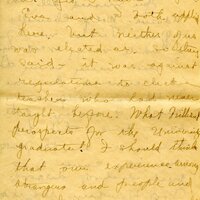 Eva and I both applied
here, but neither of us
was elected as so they
said - it was against
regulations to elect
teachers who had never
taught before. What
prospects for the University
graduate! I should think
that our experience among
strangers and people and